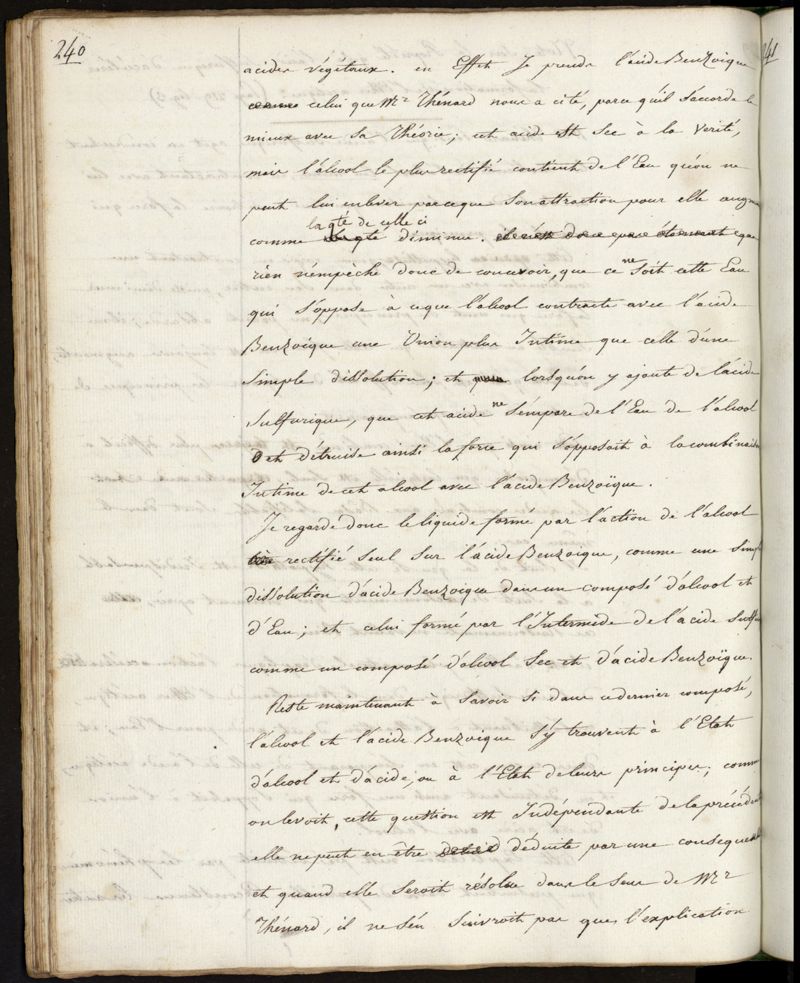 240
241
acides végétaux. en Effet Je prends l'acide Benzoique
celui que Mr Thénard nous a cité, parce qu'il s'accorde le
mieux avec sa Théorie; cet acide Est Sec à la Vérité,
mais l'alcool le plus rectifié contient de l'Eau qu'on ne
peut lui enlever parceque Son attraction pour elle augm
la qté de celle ci
comme diminue. que
rien n'empêche donc de concevoir, que ce ne Soit cette Eau
qui S'oppose à ce que l'alcool contracte avec l'acide
Benzoique une Union plus Intime que celle d'une
Simple dissolution; et lorsqu'on y ajoute de l'acide
Sulfurique, que cet acide ne S'empare de l'Eau de l'alcool
et détruise ainsi la force qui S'opposait à la combinaison
Intime de cet alcool avec l'acide Benzoïque.
Je regarde donc le liquide formé par l'action de l'alcool
rectifié Seul Sur l'acide Benzoique, comme une Simple
dissolution d'acide Benzoique dans un composé d'alcool et
d'Eau; et celui formé par l'Intermède de l'acide Sulfu
comme un composé d'alcool Sec et d'acide Benzoïque.
Reste maintenant à Savoir Si dans ce dernier composé,
l'alcool et l'acide Benzoique S'y trouvent à l'Etat
d'alcool et d'acide, ou à l'Etat de leurs principes; comme
on le voit, cette question est Indépendante de la précédente
elle ne peut en être déduite par une consequen
et quand elle Seroit résolue dans le Sens de Mr
Thénard, il ne S'en Suivroit pas que l'explication